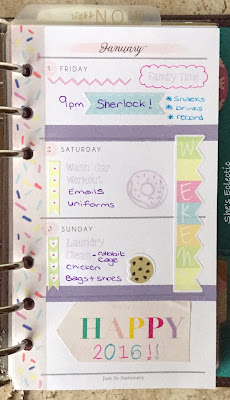 right NOW
January
1 FRIDAY
Family Time
9pm Sherlock!
* Snacks
* Drinks
* record
2 SATURDAY
Wash Car
Workout
Emails
Uniforms
WEEKEND
3 SUNDAY
Laundry
Clean - rabbit cage
Chicken
Bags + shoes
HAPPY
2016!!
She's Eclectic